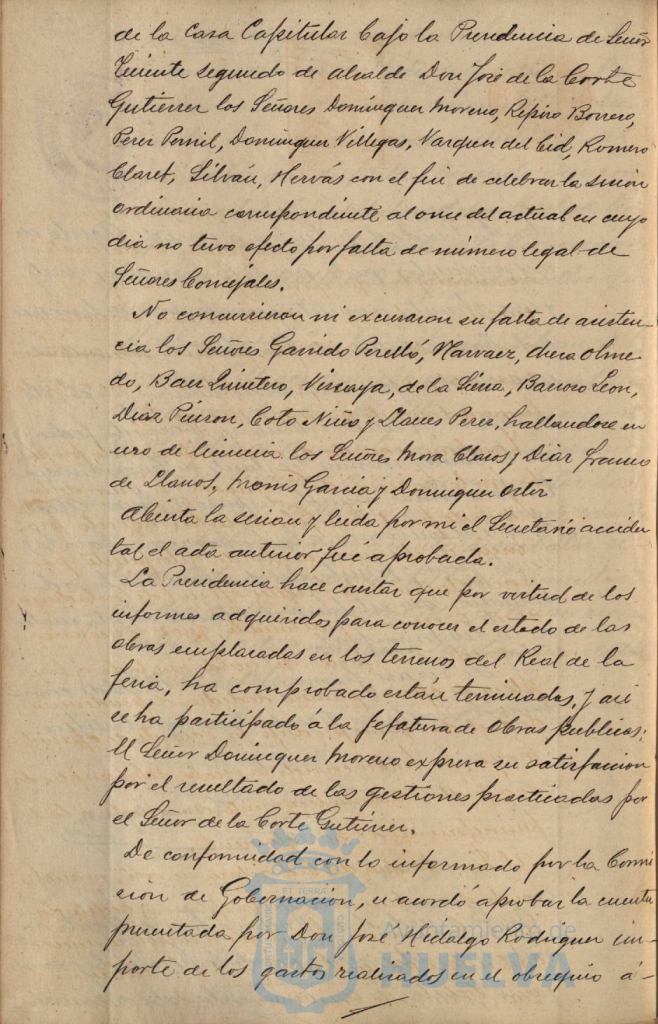 de la Casa Capitular bajo la Presidencia de Señor
Teniente segundo de alcalde Don José de la Corte
Gutierrez los Señores Dominguez Moreno, Repiso Borrero,
Perez Pernil, Dominguez Villegas, Vazquez del Cid, Romero
Claret, Silván, Hervás con el fin de celebrar la sesion
ordinaria correspondiente al once del actual en cuyo
dia no tuvo efecto por falta de número legal de
Señores Concejales.
No concurrieron ni excusaron su falta de asisten-
cia los Señores Garrido Perelló, Narvaez, Olme-
do, Baez Quintero, Vizcaya, de la Sierra, Barroso Leon,
Diaz Pinzon, Coto Niño y Llanes Perez, hallandose en
uso de licencia los Señores Mora Claros y Diaz Franco
de Llanos, Monis Garcia y Dominguez Ortiz
Abierta la sesion y leida por mi el Secretario acciden-
tal el acta anterior fué aprobada.
La Presidencia hace constar que por virtud de los
informes adquiridos para conocer el estado de las
obras emplazadas en los terrenos del Real de la
feria, ha comprobado están terminadas, y asi
se ha participado á la Jefatura de Obras publicas;
El Señor Dominguez Moreno expresa su satisfaccion
por el resultado de las gestiones practicadas por
el Señor de la Corte Gutierrez.
De conformidad con lo informado por la Comi
sion de Gobernación, se acordó aprobar la cuenta
presentada por Don José Hidalgo Rodriguez im-
porte de los gastos realizados en el obsequio á-
Ayuntamiento de
HUELVA